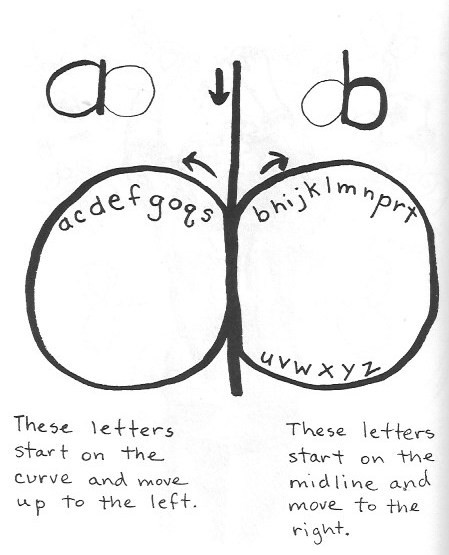 a
b
acdefgoqs
bhijklmnprt
uvwxyz
These letters
start on the
curve and move
up to the left.
These letters
start on the
midline and
move to the
right.